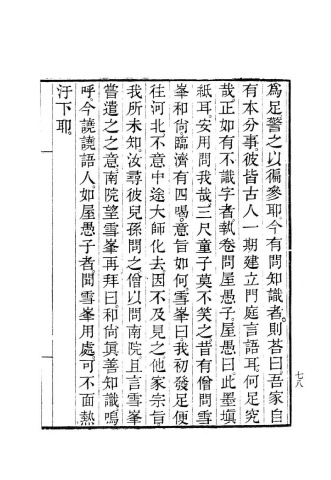 為足警之以徧參耶。今有問知識者。則荅曰。吾家自
有本分事。彼皆古人一期建立門庭言語耳。何足究
哉。正如有不識字者。執卷問屋愚子。屋愚曰。此墨塡
紙耳。安用問我哉。三尺童子莫不笑之。昔有僧問雪
峯和尙。臨濟有四喝。意旨如何。雪峯曰。我初發足便
往河北。不意中途大師化去。因不及見之。他家宗旨
我所未知。汝尋彼兒孫問之。僧以問南院。且言雪峯
嘗遣之之意。南院望雪峯再拜曰。和尙眞善知識。嗚
呼。今譊譊語人。如屋愚子者。聞雪峯用處。可不面熱
汗下耶。
七八